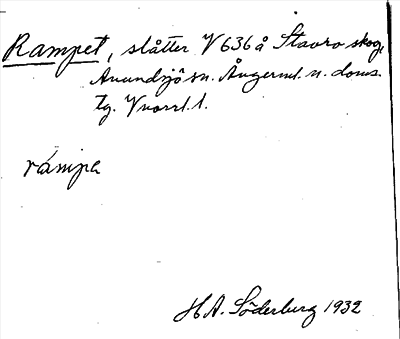 Rampet, slåtter V 636 å Stavro skog,
Anundsjö sn. Ångerml. n. doms.
tg. Vnorrl. l.
rámpa
H A. Söderburg 1932